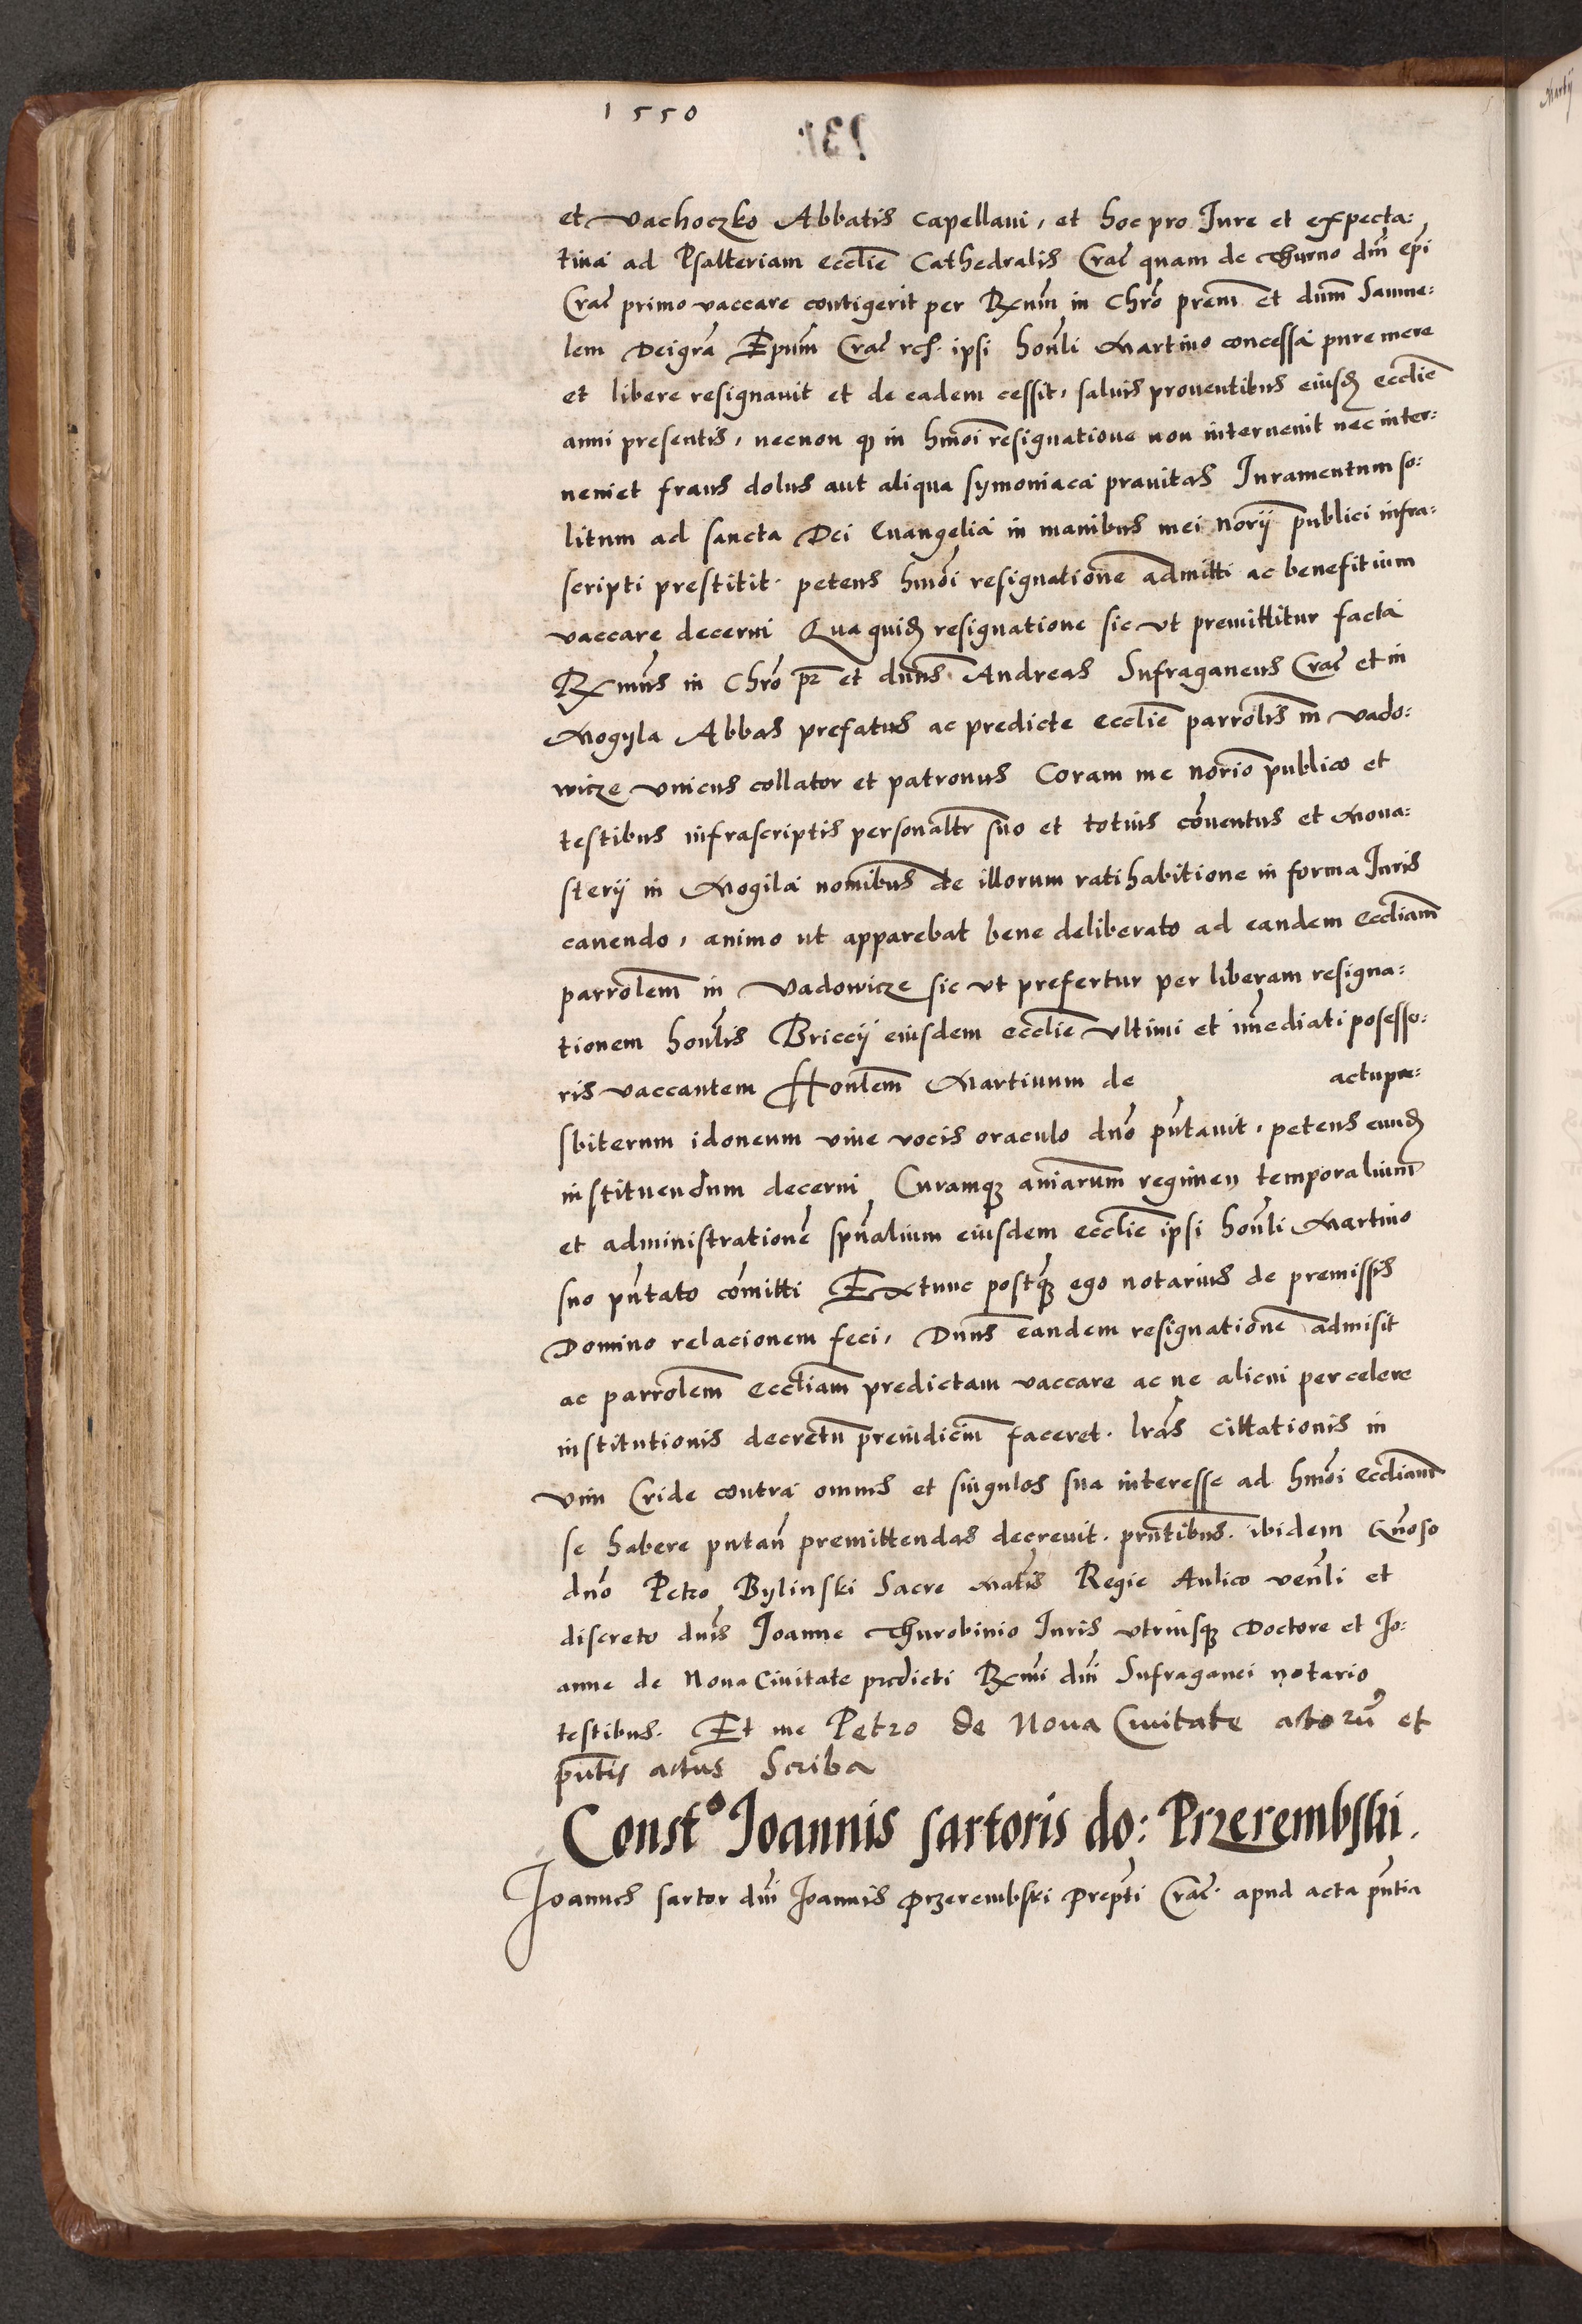 1550
et Vachoczko Abbatis Capellani, et hoc pro Jure et expecta:
tiua ad Psalteriam ecclie Cathedralis Crac quam de Thurno dni epi
Crac primo vaccare contigerit per Rxnum in Chro prem et dnm Samue:
lem Dei gra Epum Crac ipsi honli Martino concessa pure mere
et libere resignauit et de eadem cessit, saluis prouentibus eiusd ecclie
anni presentis, necnon q in hmoi resignatione non interuenit nec inter:
ueniet fraus dolus aut aliqua symoniaca prauitas Juramentum so:
litum ad sancta Dei Euangelia in manibus mei norij publici infra:
scripti prestitit. petens hmoi resignatione admitti ac benefitium
vaccare decerni Qua quid resignatione sic vt premittitur facta
Rxmus in Chro pr et dnus Andreas Sufraganeus Crac et in
Mogyla Abbas prefatus ac predicte ecclie parrolis in Vado:
wicze vnicus collator et patronus Coram me norio publico et
testibus infrascriptis personaltr suo et totius couentus et Mona:
sterij in Mogila nominibus de illorum ratihabitione in forma Juris
cauendo, animo ut apparebat bene deliberato ad eandem eccliam
parrolem in Vadowicze sic vt prefertur per liberam resigna:
tionem honlis Briccij eiusdem ecclie vltimi et imediati posesso:
ris vaccantem Honlem Martinum de actu pre:
sbiterum idoneum viue vocis oraculo dno pntauit, petens eund
instituendum decerni Curamq aniarum regimen temporalium
et administratione spualium eiusdem ecclie ipsi honli Martino
suo pntato comitti Extunc postq ego notarius de premissis
Domino relacionem feci, Dnus eandem resignatione admisit
ac parrolem eccliam predictam vaccare ac ne alicui per celere
institutionis decretu preiudicium faceret. lras Cittationis in
vim Cride contra omnes et singulos sua interesse ad hmoi eccliam
se habere putan premittendas decreuit. prntibus. ibidem Gnoso
dno Petro Bylinski Sacre Matis Regie Aulico venli et
discreto dnis Joanne Thurobinio Juris vtriusq Doctore et Jo:
anne de Noua Ciuitate predicti Rxmi dni Sufraganei notario
testibus. Et me Petro de Noua Ciuitate actoru et
pntis actus Scriba
Const° Joannis sartoris do: Przerembski.
Joannes sartor dni Joannis Przerembski Prepti Crac. apud acta pntia